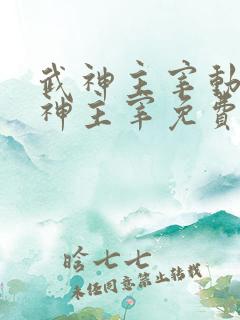 武神主宰動
神主宰免費
晗七七
未经同意禁止转载